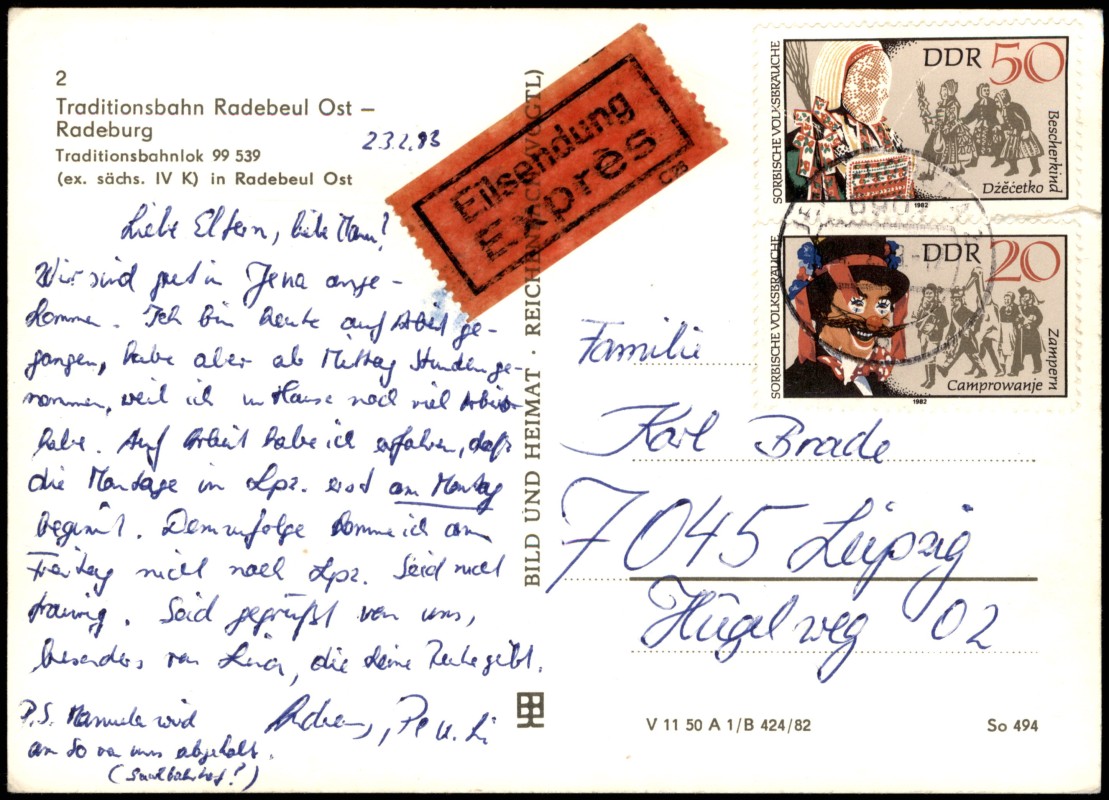 2
Traditionsbahn Radebeul Ost –
Radeburg
Traditionsbahnlok 99 539
(ex. sächs. IV K) in Radebeul Ost
23.2.83
Liebe Eltern, liebe
Wir sind gut in Jena ange-
kommen. Ich bin heute auf Arbeit ge-
gangen, habe aber ab Mittag Stunden ge-
nommen, weil ich im Hause noch viel Arbeit
habe. Auf Arbeit habe ich erfahren, daß
die Montage in Lpz. erst am Montag
beginnt. Demzufolge komme ich am
Freitag nicht nach Lpz. Seid nicht
traurig. Seid gegrüßt von uns,
besonders von die keine Ruhe gibt.
u. Li
P.S. Manuela wird
am So von uns abgeholt.
(Saalbahnhof?)
BILD UND HEIMAT · REICHENBACH (VOGTL)
Eilsendung
Exprès
SORBISCHE VOLKSBRÄUCHE
DDR 50
Bescherkind
Dźěćetko
1982
SORBISCHE VOLKSBRÄUCHE
DDR 20
Zampern
Camprowanje
1982
Familie
Karl Brade
7045 Leipzig
Hügelweg 02
V 11 50 A 1/B 424/82
So 494